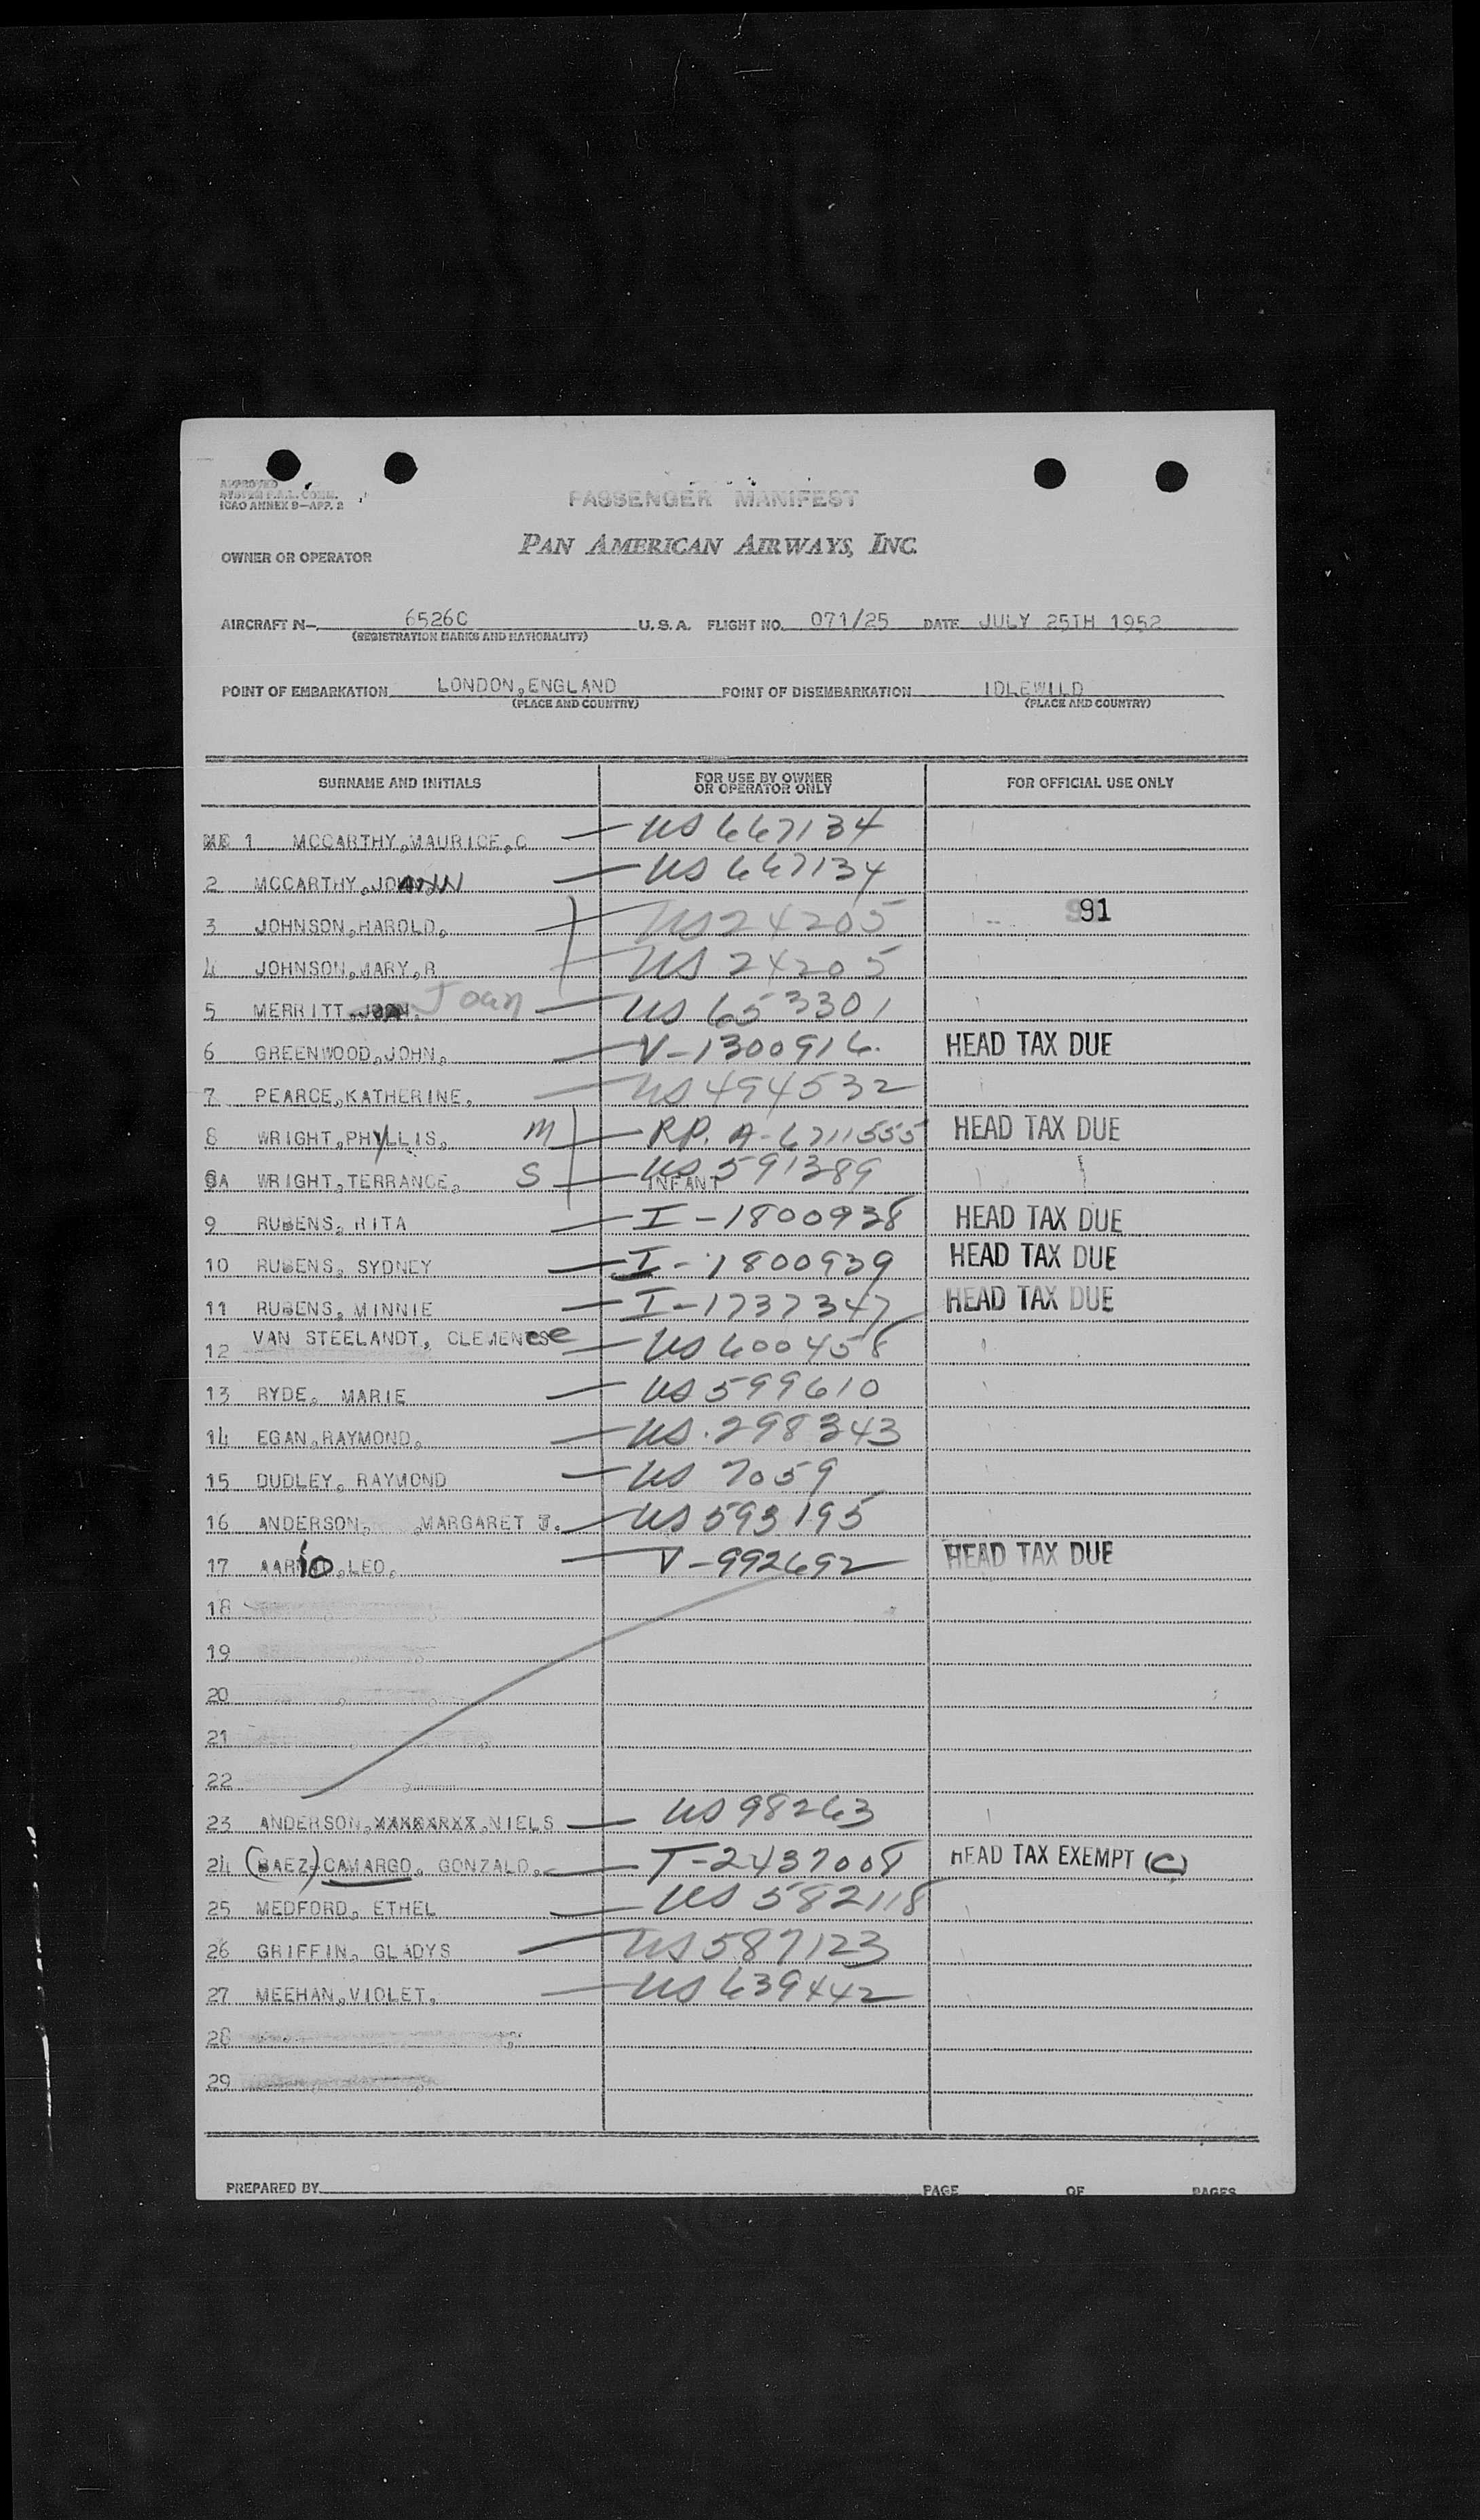 APPROVED
SYSTEM F.A.L. COMM.
ICAO ANNEX 9—APP. 2
PASSENGER MANIFEST
OWNER OR OPERATOR PAN AMERICAN AIRWAYS, INC.
AIRCRAFT N- 6526C U. S. A. FLIGHT NO. 071/25 DATE JULY 25TH 1952
(REGISTRATION MARKS AND NATIONALITY)
POINT OF EMBARKATION LONDON,ENGLAND POINT OF DISEMBARKATION IDLEWILD
(PLACE AND COUNTRY) (PLACE AND COUNTRY)
SURNAME AND INITIALS FOR USE BY OWNER OR OPERATOR ONLY FOR OFFICIAL USE ONLY
1 MCCARTHY,MAURICE,C — US 667134
2 MCCARTHY,JOANN — US 667134
3 JOHNSON,HAROLD, — US 24205 991
4 JOHNSON,MARY,R — US 24205
5 MERRITT, Joan — US 653301
6 GREENWOOD,JOHN, — V-1300916. HEAD TAX DUE
7 PEARCE,KATHERINE, — US 494532
8 WRIGHT,PHYLLIS, M — RP. A-6711555 HEAD TAX DUE
8A WRIGHT,TERRANCE, S — US 591389 INFANT
9 RUBENS, RITA — I-1800938 HEAD TAX DUE
10 RUBENS, SYDNEY — I-1800939 HEAD TAX DUE
11 RUBENS, MINNIE — I-1737347 HEAD TAX DUE
12 VAN STEELANDT, CLEMENce — US 600458
13 RYDE, MARIE — US 599610
14 EGAN,RAYMOND, — US.298343
15 DUDLEY, RAYMOND — US 7059
16 ANDERSON, ,MARGARET J. — US 593195
17 AARIO,LEO, — V-992692 HEAD TAX DUE
18
19
20
21
22
23 ANDERSON,XXXXXXXX,NIELS — US 98263
24 (BAEZ)-CAMARGO, GONZALO, — T-2437008 HEAD TAX EXEMPT (C)
25 MEDFORD, ETHEL — US 582118
26 GRIFFIN, GLADYS — US 587123
27 MEEHAN,VIOLET, — US 639442
28
29
PREPARED BY PAGE OF PAGES